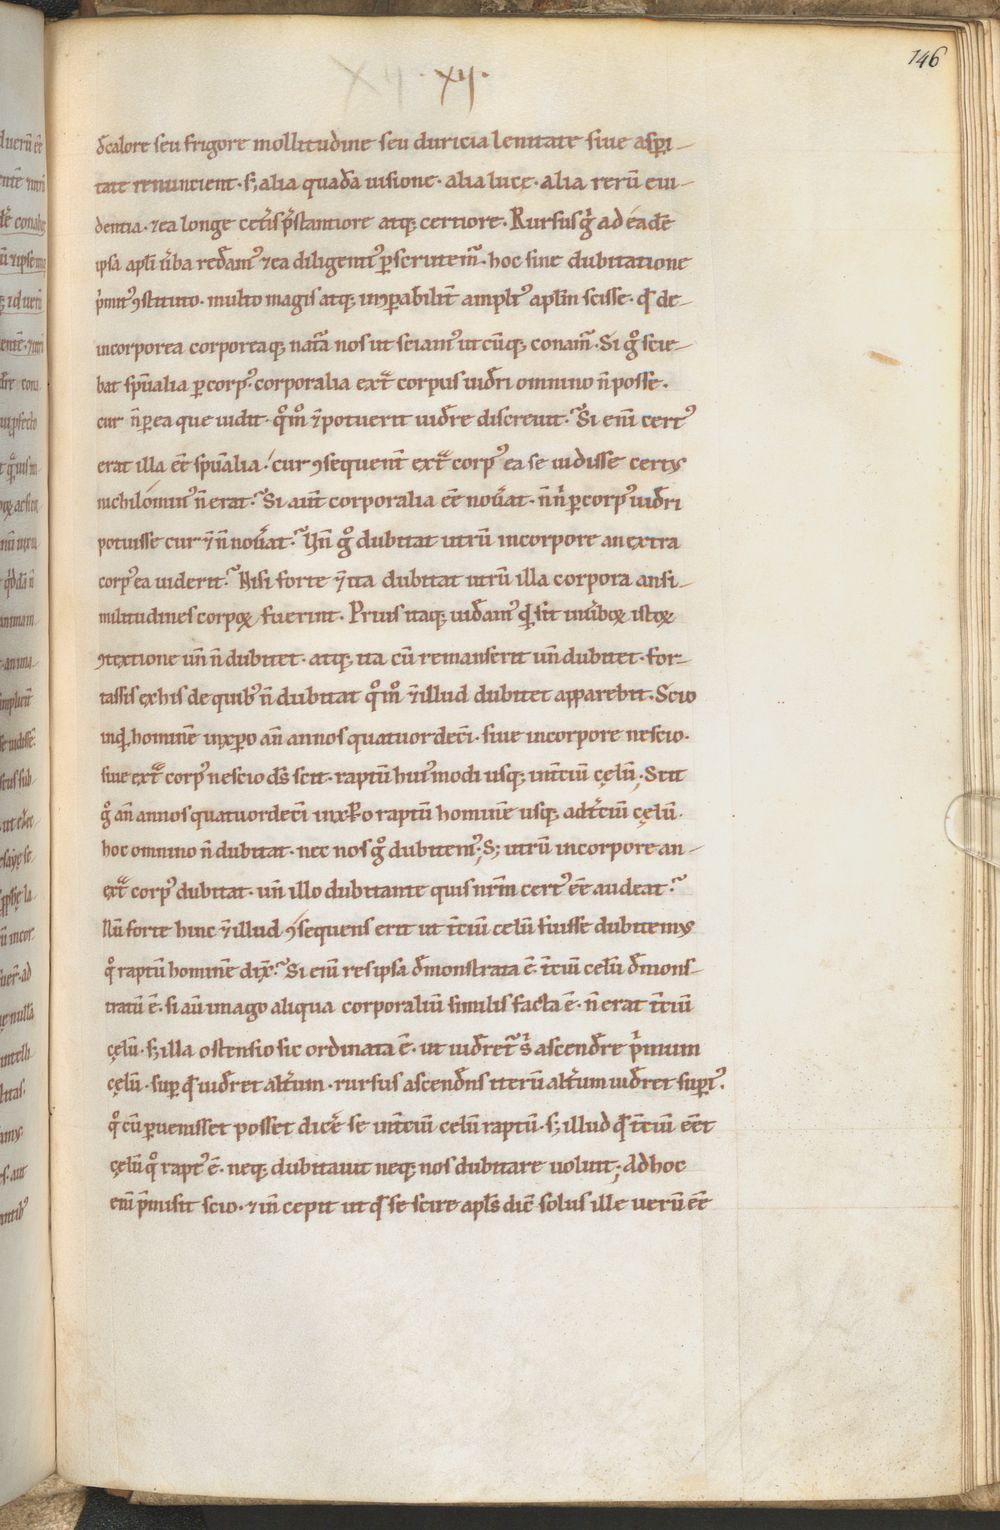 146
XII · XII ·
d̄calore seu frigore mollitudine seu duricia lenitate siue asp̱i-
tate renuncient · s; alia quadā uisione · alia luce · alia rerū eui-
dentia · ⁊ ea longe cet̄is p̄stantiore atq; certiore · Rursus gͥ ad eadē
ipsa apłi u̅ba redam᷒ ⁊ ea diligenti᷒ p̱scrutem̄ · hoc sine dubitatione
p̄mit᷒ ꝯstituto · multo magis atq; inꝯparabilit̄ ampli᷒ apłm scisse · qđ de-
incorporea corporeaq; nat̄a nos ut sciam᷒ utcūq; conam̄ · Si gͦ scie-
bat spūalia p̱ corp᷒ · corporalia ext̄ corpus uid̄ri omnino n̄ posse ·
cur n̄ p̱ ea que uidit · qͦmͦ ⁊ potuerit uid̄re discreuit · Si enī cert᷒
erat illa eē spūalia · cur ꝯsequent̄ ext̄ corp᷒ ea se uidisse certus
nichilomin᷒ n̄ erat · Si aūt corporalia eē nou̅at · n̄ n͛ p̱ corp᷒ uid̄ri
potuisse cur ⁊ n̄ nou̅at · Vn̄ gͦ dubitat utrū incorpore an extra
corp᷒ ea uiderit · Nisi forte ⁊ ita dubitat utrū illa corpora an si-
militudines corpoꝝ fuerint · Prius itaq; uideam᷒ qđ sit in u̅boꝝ istoꝝ
ꝯtextione un̄ n̄ dubitet · atq; ita cū remanserit un̄ dubitet · for-
tassis ex his de quib᷒ n̄ dubitat qͦmͦ ⁊ illud dubitet apparebit · Scio
inqđ hominē inxp̄o an̄ annos quatuordecī · siue incorpore nescio ·
siue ext̄ corp᷒ nescio ds̄ scit · raptū hui᷒modi usq; in t̄ciū cęlū · Scit
gͦ an̄ annos quatuordecī inxp̄o raptū hominē usq; ad t̄ciū cęlū ·
hoc omnino n̄ dubitat · nec nos gͦ dubitem᷒ ; S; utrū incorpore an -
ext̄ corp᷒ dubitat · un̄ illo dubitante quis nr̄m cert᷒ eē audeat ·
Nū forte hinc ⁊ illud ꝯsequens erit ut t̄ciū celū fuisse dubitemus
qͦ raptū hominē dix̄ · Si enī res ipsa d̄monstrata ē · t̄ciū celū d̄mons-
tratū ē · si aū imago aliqua corporaliū similis facta ē · n̄ erat t̄ciū
cęlū · s; illa ostensio sic ordinata ē · ut uid̄ret᷒ s͛ ascend̄re p̄mum
cęlū · sup̱ qđ uid̄ret alt̄um · rursus ascend̄ns iterū alt̄um uid̄ret sup̱i᷒ ·
qͦ cū p̱uenisset posset dicē se in t̄ciū celū raptū · s; illud qđ t̄ciū eēt
cęlū qͦ rapt᷒ ē · neq; dubitauit neq; nos dubitare uoluit ; Ad hoc
enī p̄misit scio · ⁊ in̄ cepit ut qđ se scire apłs dic̄ solus ille uerū eē